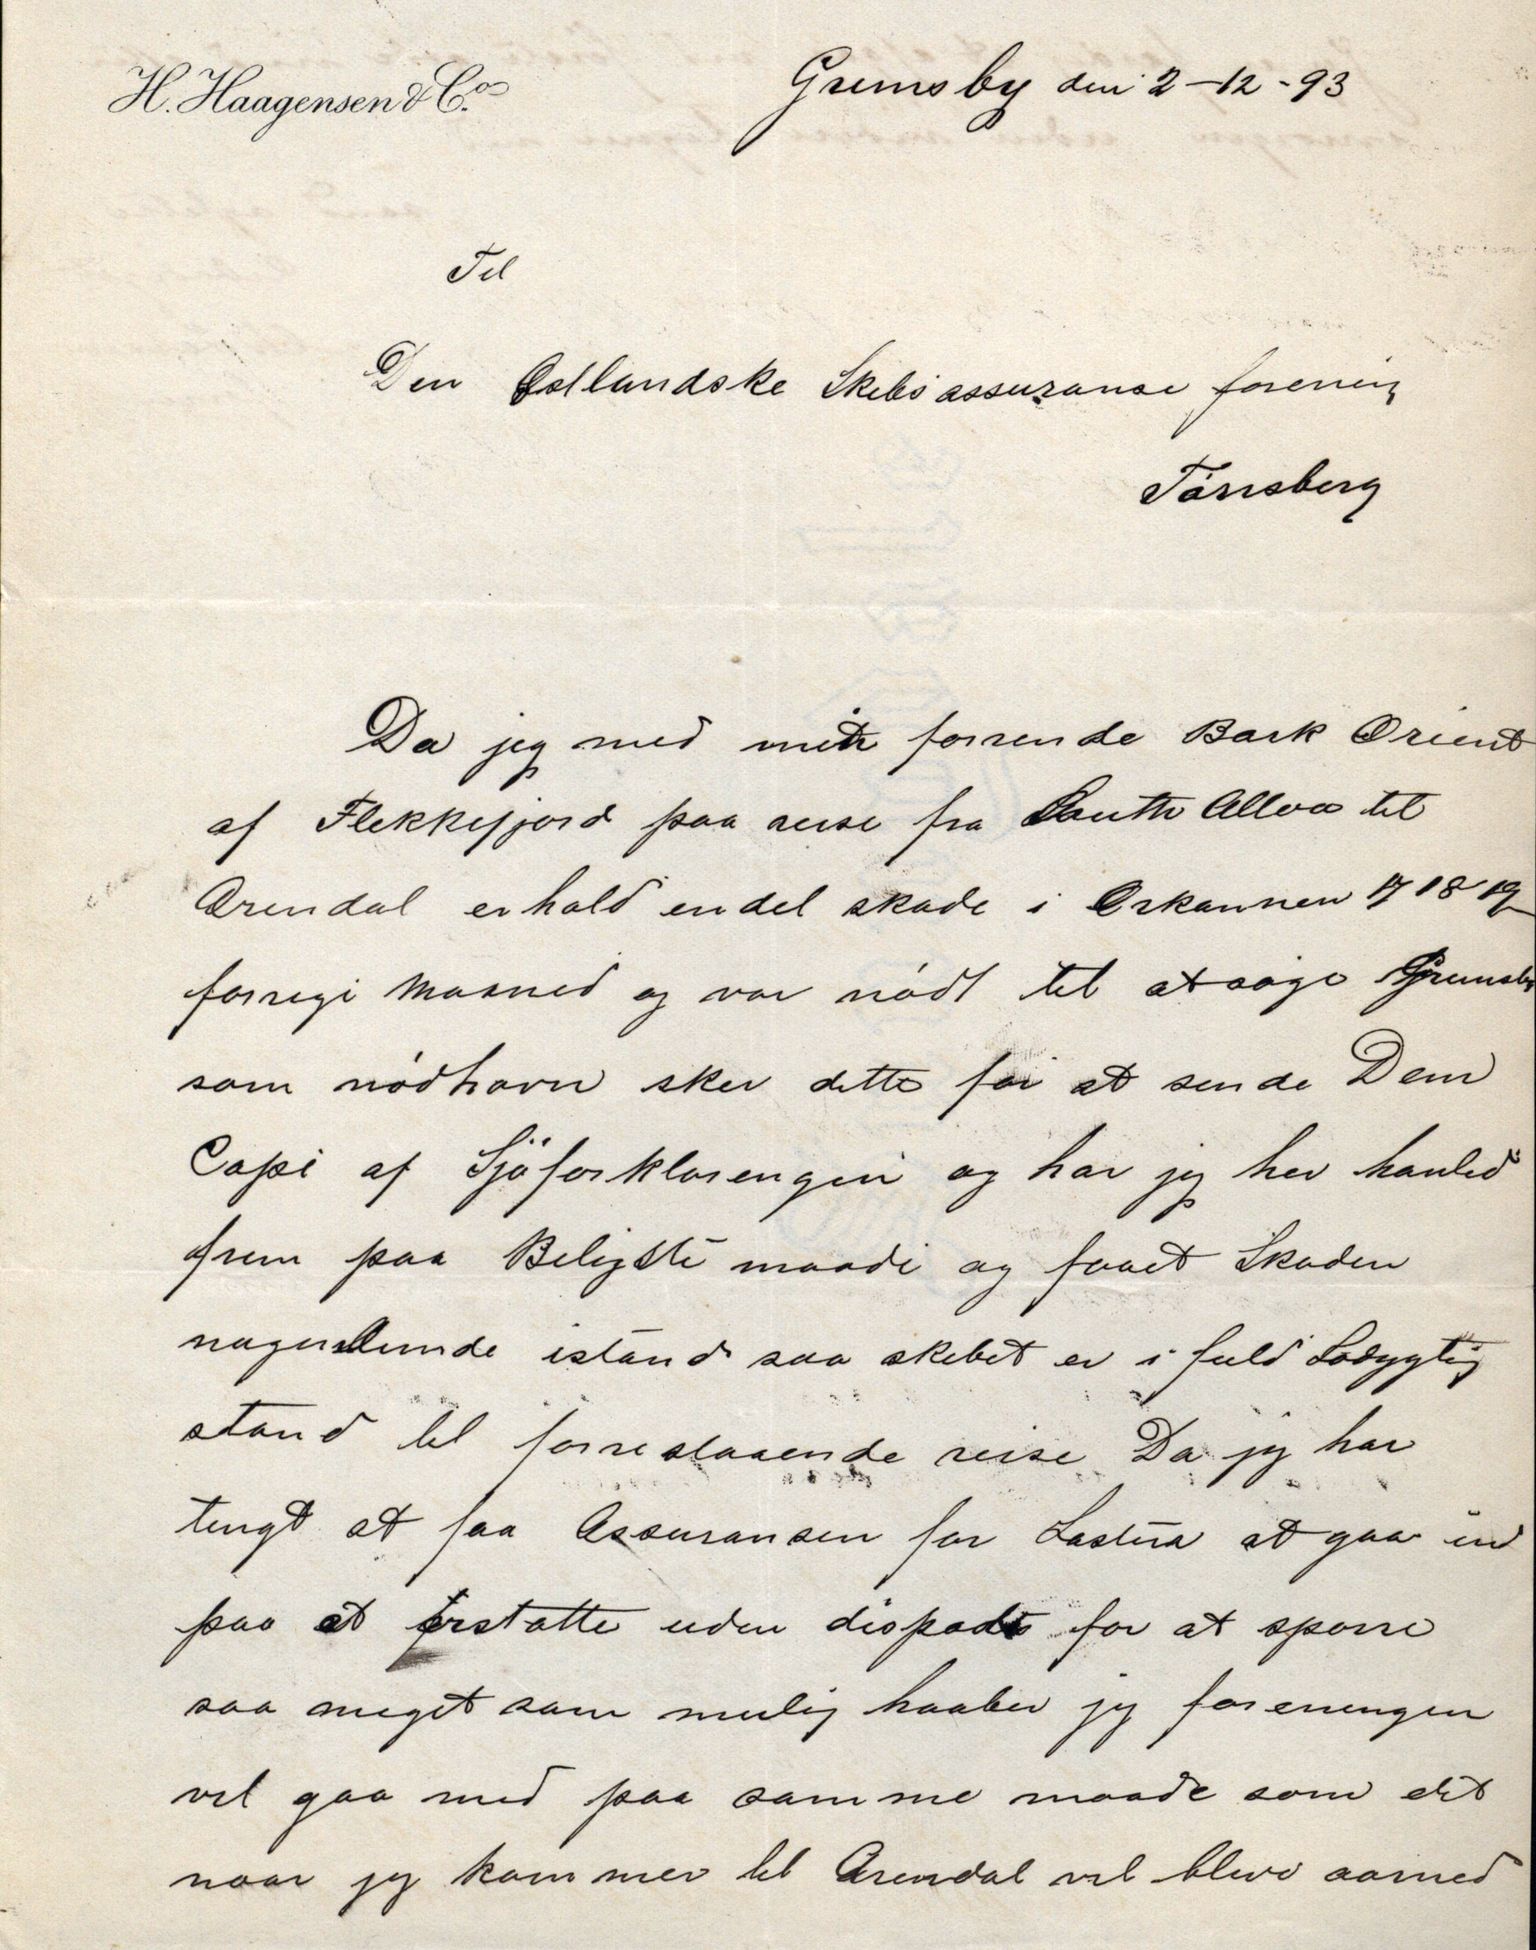 H. Haagensen & Co.s
Gremsby den 2-12-93
Til
Den Østlandske Skibsassuranse forening
Tönsberg
Da jeg med mit forrende Bark Orient
af Flekkefjord paa reise fra South Alloa til
Arendal erhold endel skade i Orkannen 17 18 19
forrige Maaned og var nödt til at söge Gremsby
som nödhavn sker dette for at sende Dem
Copi af Sjöforklarengen og har jeg her hanled
frem paa Beligste maade og faaet Skaden
nogenlunde istand saa skibet er i fuld Södygtig
stand til forrestaaende reise Da jeg har
tengt at faa Assuransen for Lasten at gaa ind
paa at erstatte uden dispads for at sparre
saa meget som mulig haaber jeg foreningen
vil gaa med paa samme maade som det
naar jeg kommer til Arendal vil blive